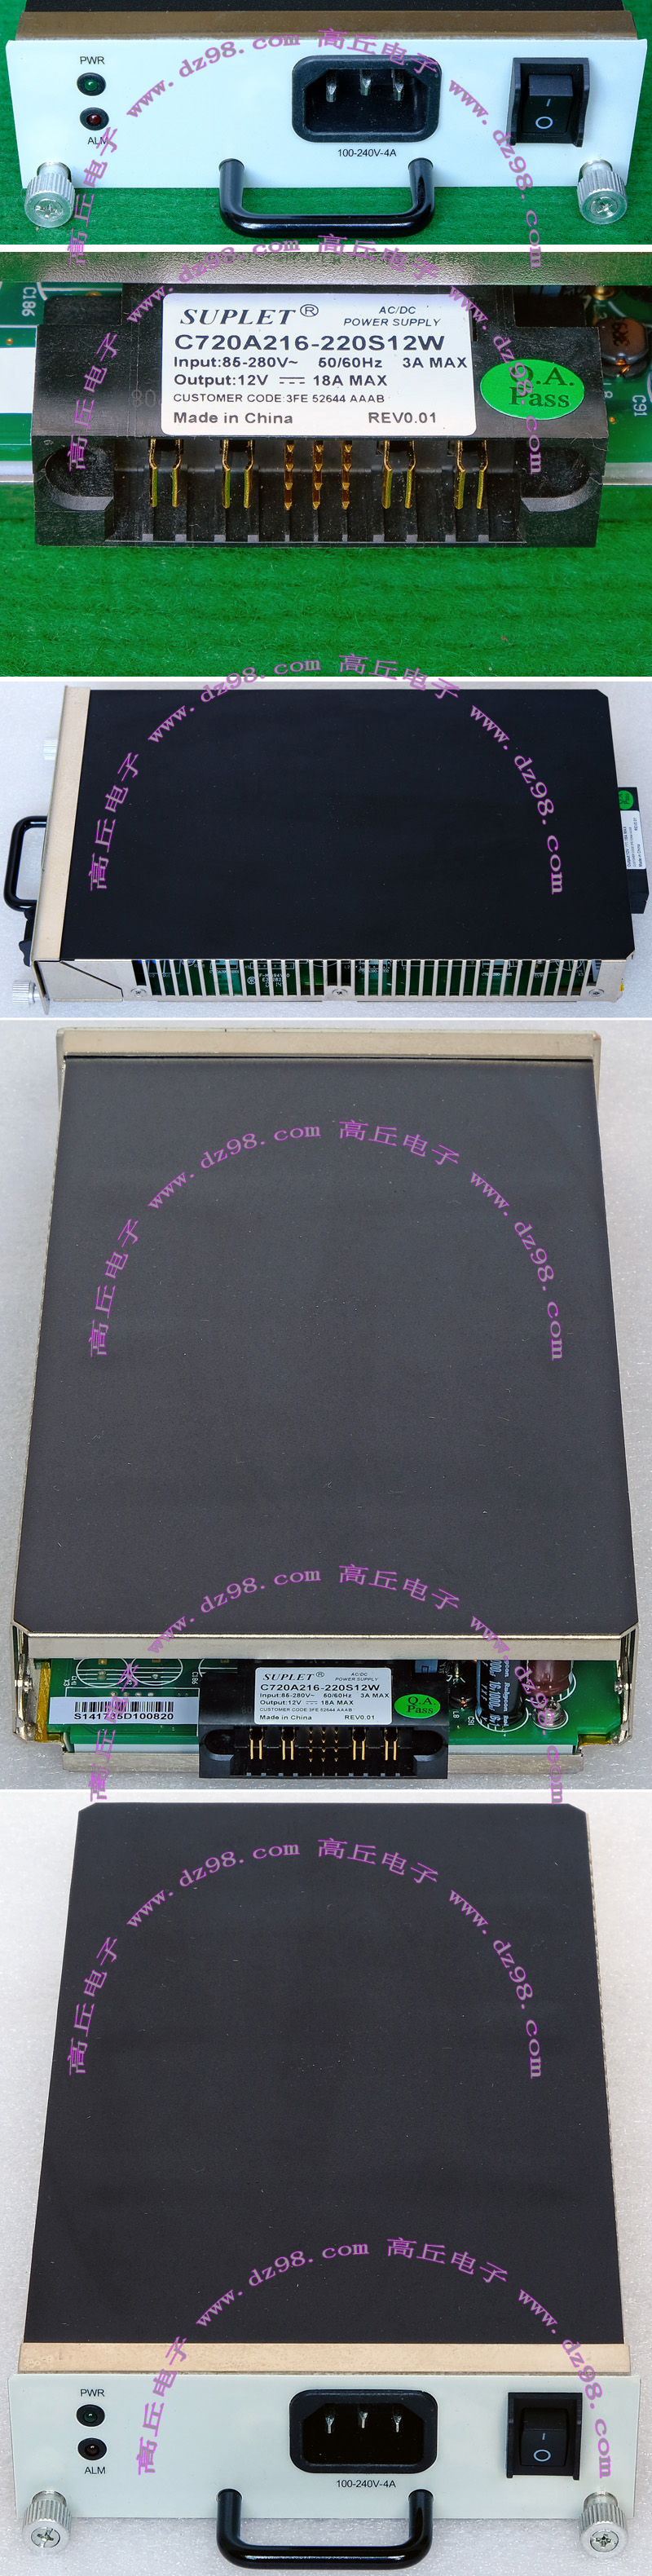 www.dz98.com 高丘电子
高丘电子 www.dz98.com
PWR
ALM
100-240V-4A
www.dz98.com 高丘电子
高丘电子 www.dz98.com
C186
SUPLET®
AC/DC
POWER SUPPLY
C720A216-220S12W
Input:85-280V~ 50/60Hz 3A MAX
Output:12V 18A MAX
CUSTOMER CODE:3FE 52644 AAAB
Made in China REV0.01
Q.A.
Pass
C91
www.dz98.com 高丘电子
高丘电子 www.dz98.com
www.dz98.com 高丘电子
高丘电子 www.dz98.com
www.dz98.com 高丘电子
高丘电子 www.dz98.com
SUPLET®
AC/DC
POWER SUPPLY
C720A216-220S12W
Input:85-280V~ 50/60Hz 3A MAX
Output:12V 18A MAX
CUSTOMER CODE:3FE 52644 AAAB
Made in China REV0.01
Q.A.
Pass
www.dz98.com 高丘电子
高丘电子 www.dz98.com
www.dz98.com 高丘电子
高丘电子 www.dz98.com
PWR
ALM
100-240V-4A